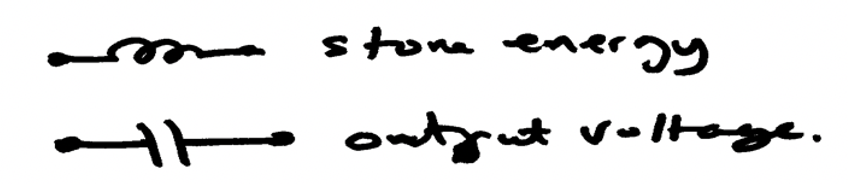 store energy
output voltage.